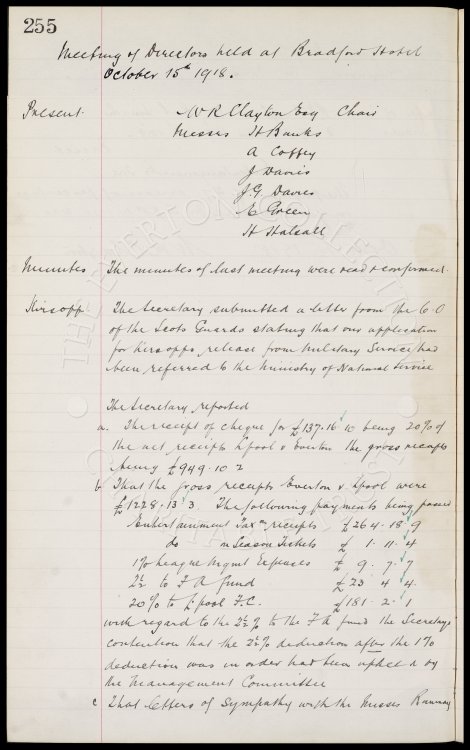 255
Meeting of Directors held at Bradford Hotel
October 15th 1918.
Present. W R Clayton Esq Chair
Messrs H Banks
A Coffey
J Davies
J. G. Davies
E Green
H Halsall
Minutes The minutes of last meeting were read & confirmed.
Kirsopp The Secretary submitted a letter from the C.O
of the Scots Guards stating that our application
for Kirsopps release from Military Service had
been referred to the Ministry of National Service
The Secretary reported
a. The receipt of cheque for £137.16.10 being 20% of
the net receipts L'pool v Everton the gross receipts
being £949.10.2
b That the gross receipts Everton v L'pool were
£1228.13.3. The following payments being passed
Entertainment Tax on receipts £264.18.9
do on Season Tickets £1.11.4
1% League Mgmt Expenses £9.7.7
2½ to F A fund £23.4.4
20% to L'pool F.C. £181.2.1
with regard to the 2½% to the F A fund the Secretarys
contention that the 2½% deduction after the 1%
deduction was in order had been upheld by
the Management Committee
c That letters of Sympathy with the Misses
THE EVERTON COLLECTION